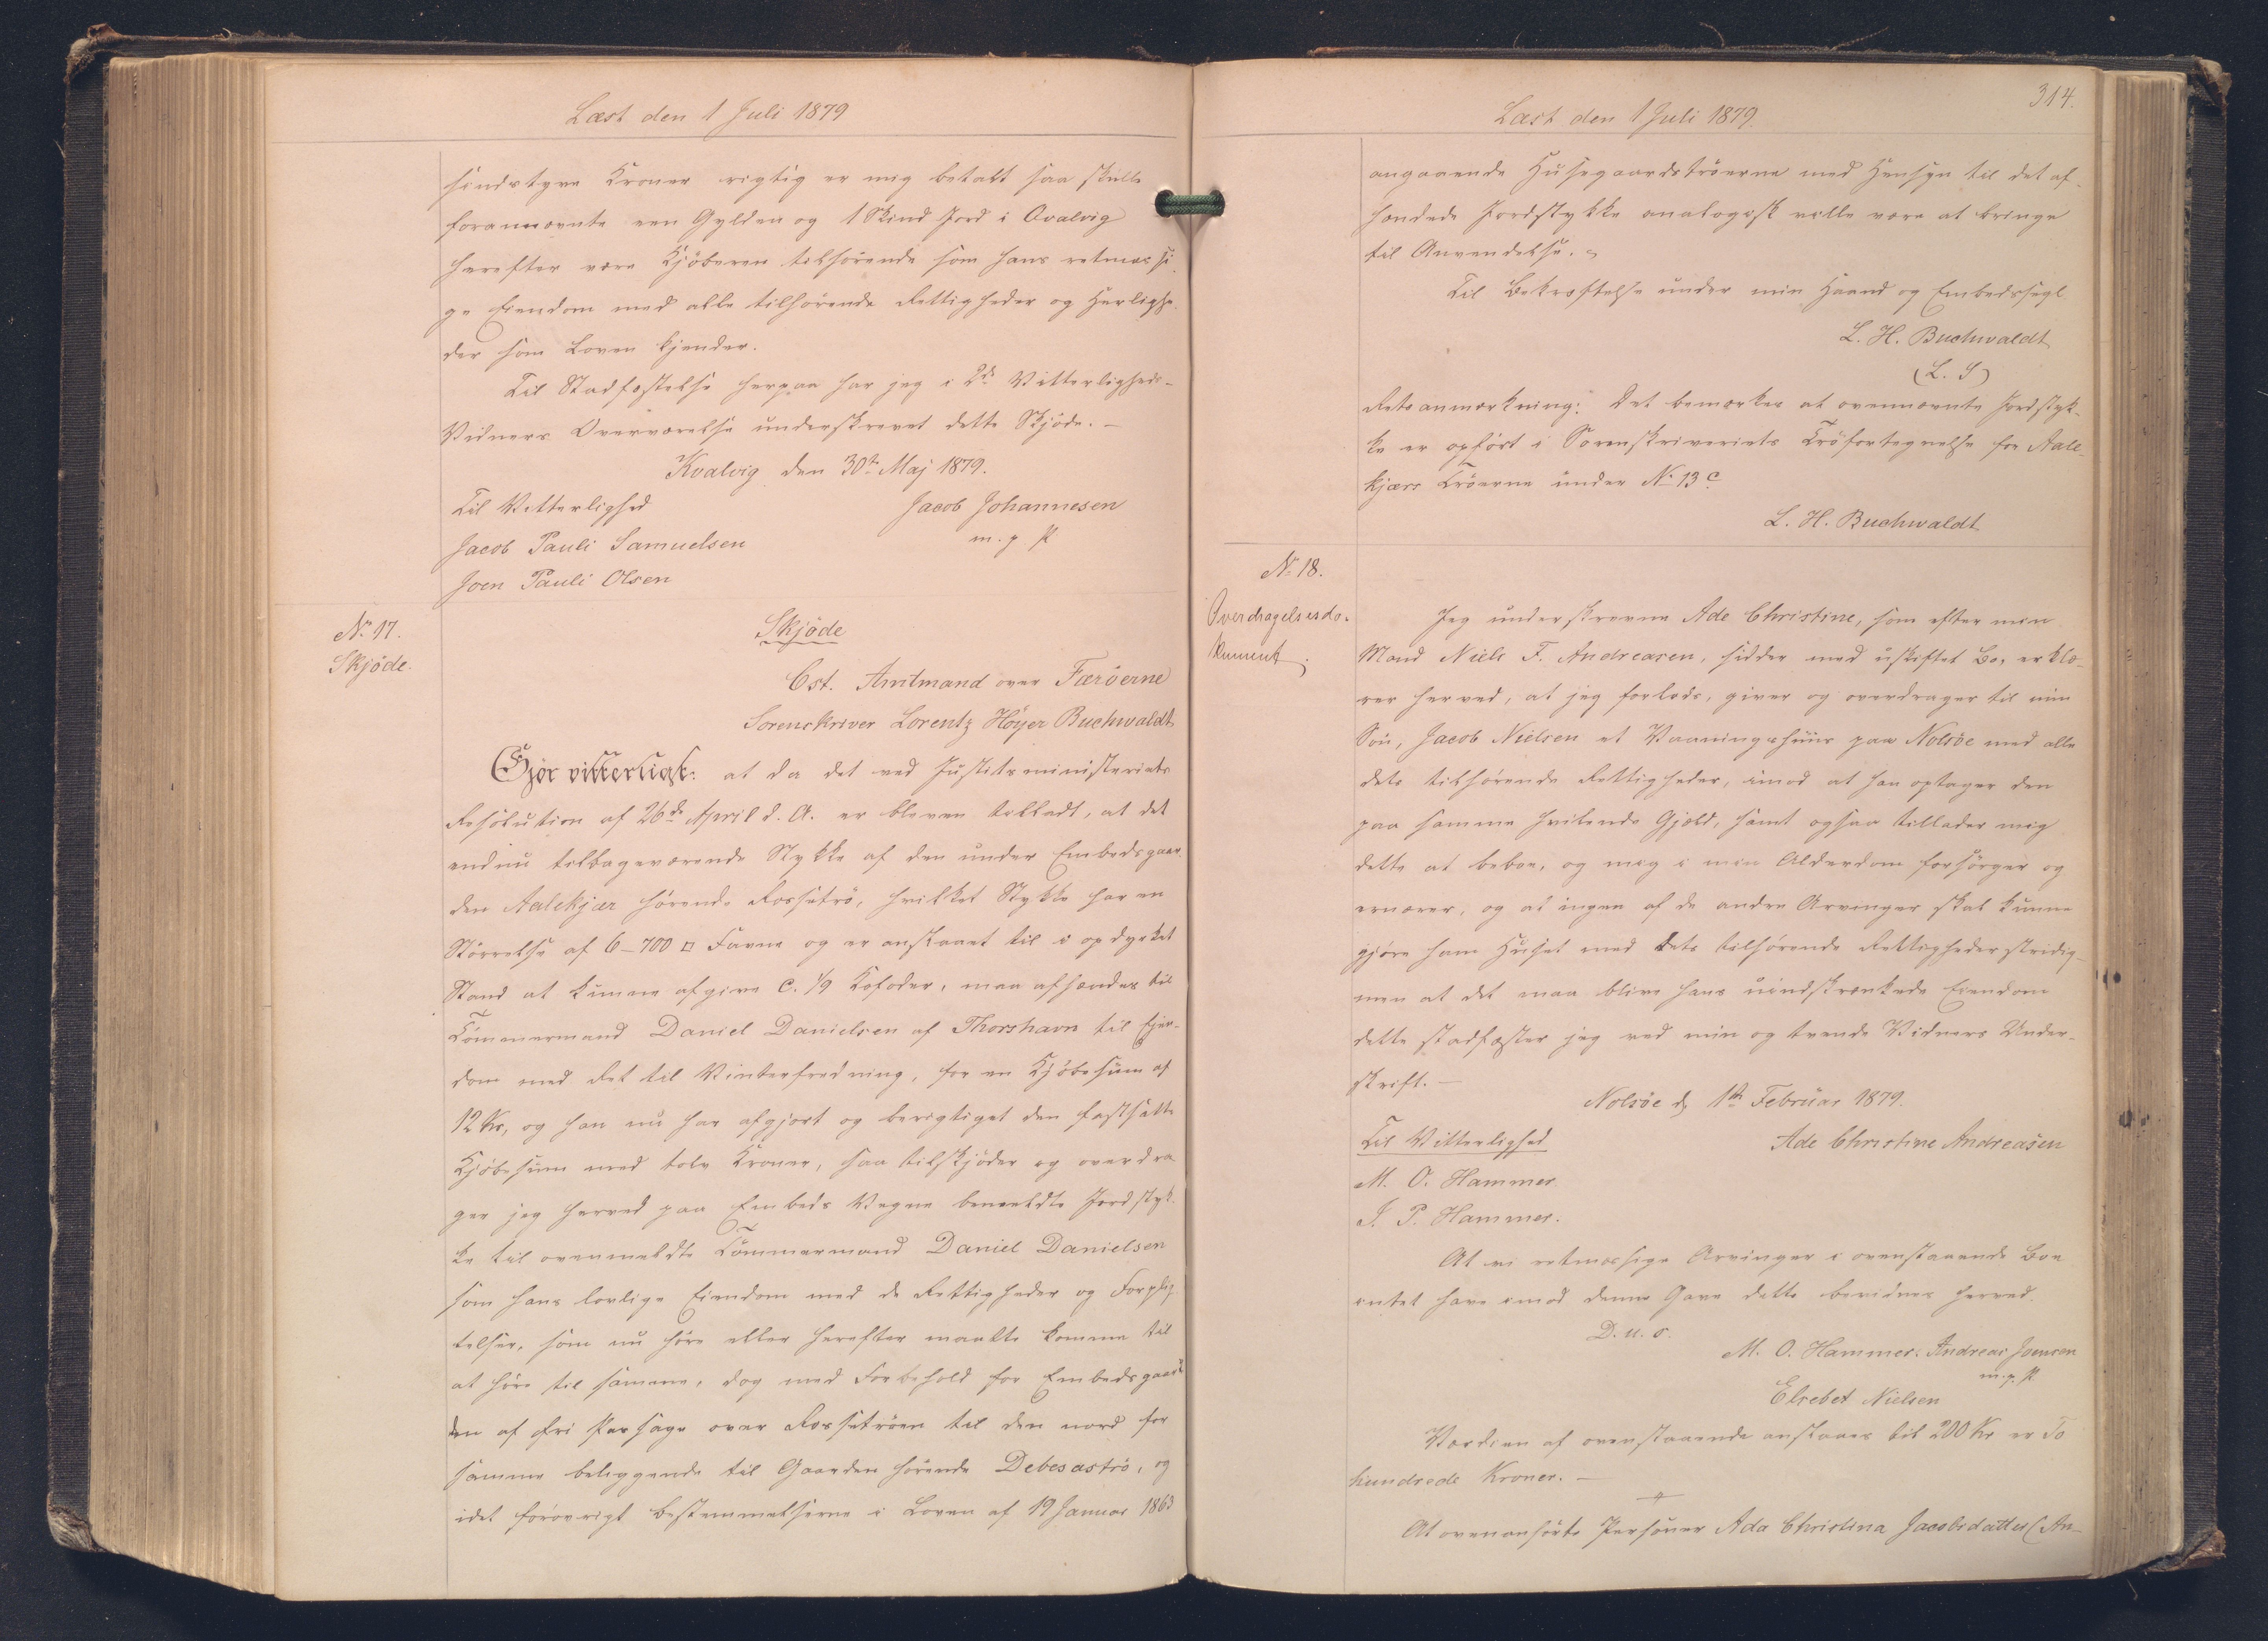 Læst den 1 Juli 1879
sindstyve Kroner rigtig er mig betalt saa skulle
forannævnte een Gylden og 1 Skind Jord i Qvalvig
herefter være Kjöberen tilhörende som hans retmæssi-
ge Eiendom med alle tilhörende Rettigheder og Herlighe-
der som Loven kjender.
Til Stadfæstelse herpaa har jeg i 2de Vitterligheds-
Vidners Overværelse underskrevet dette Skjöde. —
Kvalvig den 30te Maj 1879.
Til Vitterlighed
Jacob Johannesen
m. p. P.
Jacob Pauli Samuelsen
Joen Pauli Olsen
No 17.
Skjöde.
Skjöde
Cst. Amtmand over Færöerne
Sorenskriver Lorentz Höyer Buchwaldt
Gjör vitterligt: at da det ved Justitsministeriets
Resolution af 26de April d. A. er bleven tilladt, at det
endnu tilbageværende Stykke af den under Embedsgaar-
den Aalekjær hörende Rossatrö, hvilket Stykke har en
Störrelse af 6-700 □ Favne og er anslaaet til i opdyrket
Stand at kunne afgive c. 1/9 Kofoder, maa afhændes til
Tömmermand Daniel Danielsen af Thorshavn til Ejen-
dom med Ret til Vinterfredning, for en Kjöbesum af
12 Kr, og han nu har afgjort og berigtiget den fastsatte
Kjöbesum med tolv Kroner, saa tilskjöder og overdra
ger jeg herved paa Embeds Vegne bemeldte Jordstyk-
ke til ovenmeldte Tömmermand Daniel Danielsen
som hans lovlige Eiendom med de Rettigheder og Forplig-
telser, som nu höre eller herefter maatte komme til
at höre til samme, dog med Forbehold for Embedsgaar-
den af fri Passage over Rossatröen til den nord for
samme beliggende til Gaarden hörende Debesaströ, og
idet forövrigt Bestemmelserne i Loven af 19 Januar 1863
314.
Læst den 1 Juli 1879.
angaaende Husegaardströerne med Hensyn til det af-
hændede Jordstykke analogisk ville være at bringe
til Anvendelse. -
Til Bekræftelse under min Haand og Embedssegl
L. H. Buchwaldt
(L. S)
Retsanmærkning: Det bemærkes at ovennævnte Jordstyk-
ke er opfört i Sorenskriveriets Tröfortegnelse for Aale-
kjærs Tröerne under No 13 c
L. H. Buchwaldt
No 18.
Overdragelsesdo-
kument.
Jeg underskrevne Ade Christine, som efter min
Mand Niels F. Andreasen, sidder med uskiftet Bo, erklæ-
rer herved, at jeg forlods, giver og overdrager til min
Sön, Jacob Nielsen et Vaaningshuus paa Nolsöe med alle
dets tilhörende Rettigheder, imod at han optager den
paa samme hvilende Gjæld, samt ogsaa tillader mig
dette at beboe, og mig i min Alderdom forsörger og
ernærer, og at ingen af de andre Arvinger skal kunne
gjöre ham Huset med dets tilhörende Rettigheder stridig-
men at det maa blive hans uindskrænkede Eiendom
dette stadfæster jeg ved min og tvende Vidners Under-
skrift. —
Nolsöe d, 1te Februar 1879.
Til Vitterlighed
Ade Christine Andreasen
M. O. Hammer
J. P. Hammer.
At vi retmæssige Arvinger i ovenstaaende Boe
intet have imod denne Gave dette bevidnes herved.
D. u. s.
M. O. Hammer. Andreas Joensen
m. p. P.
Elsebet Nielsen
Værdien af ovenstaaende anslaaes til 200 Kr er To
hundrede Kroner. —
At ovenanförte Personer Ada Christina Jacobsdatter (An-